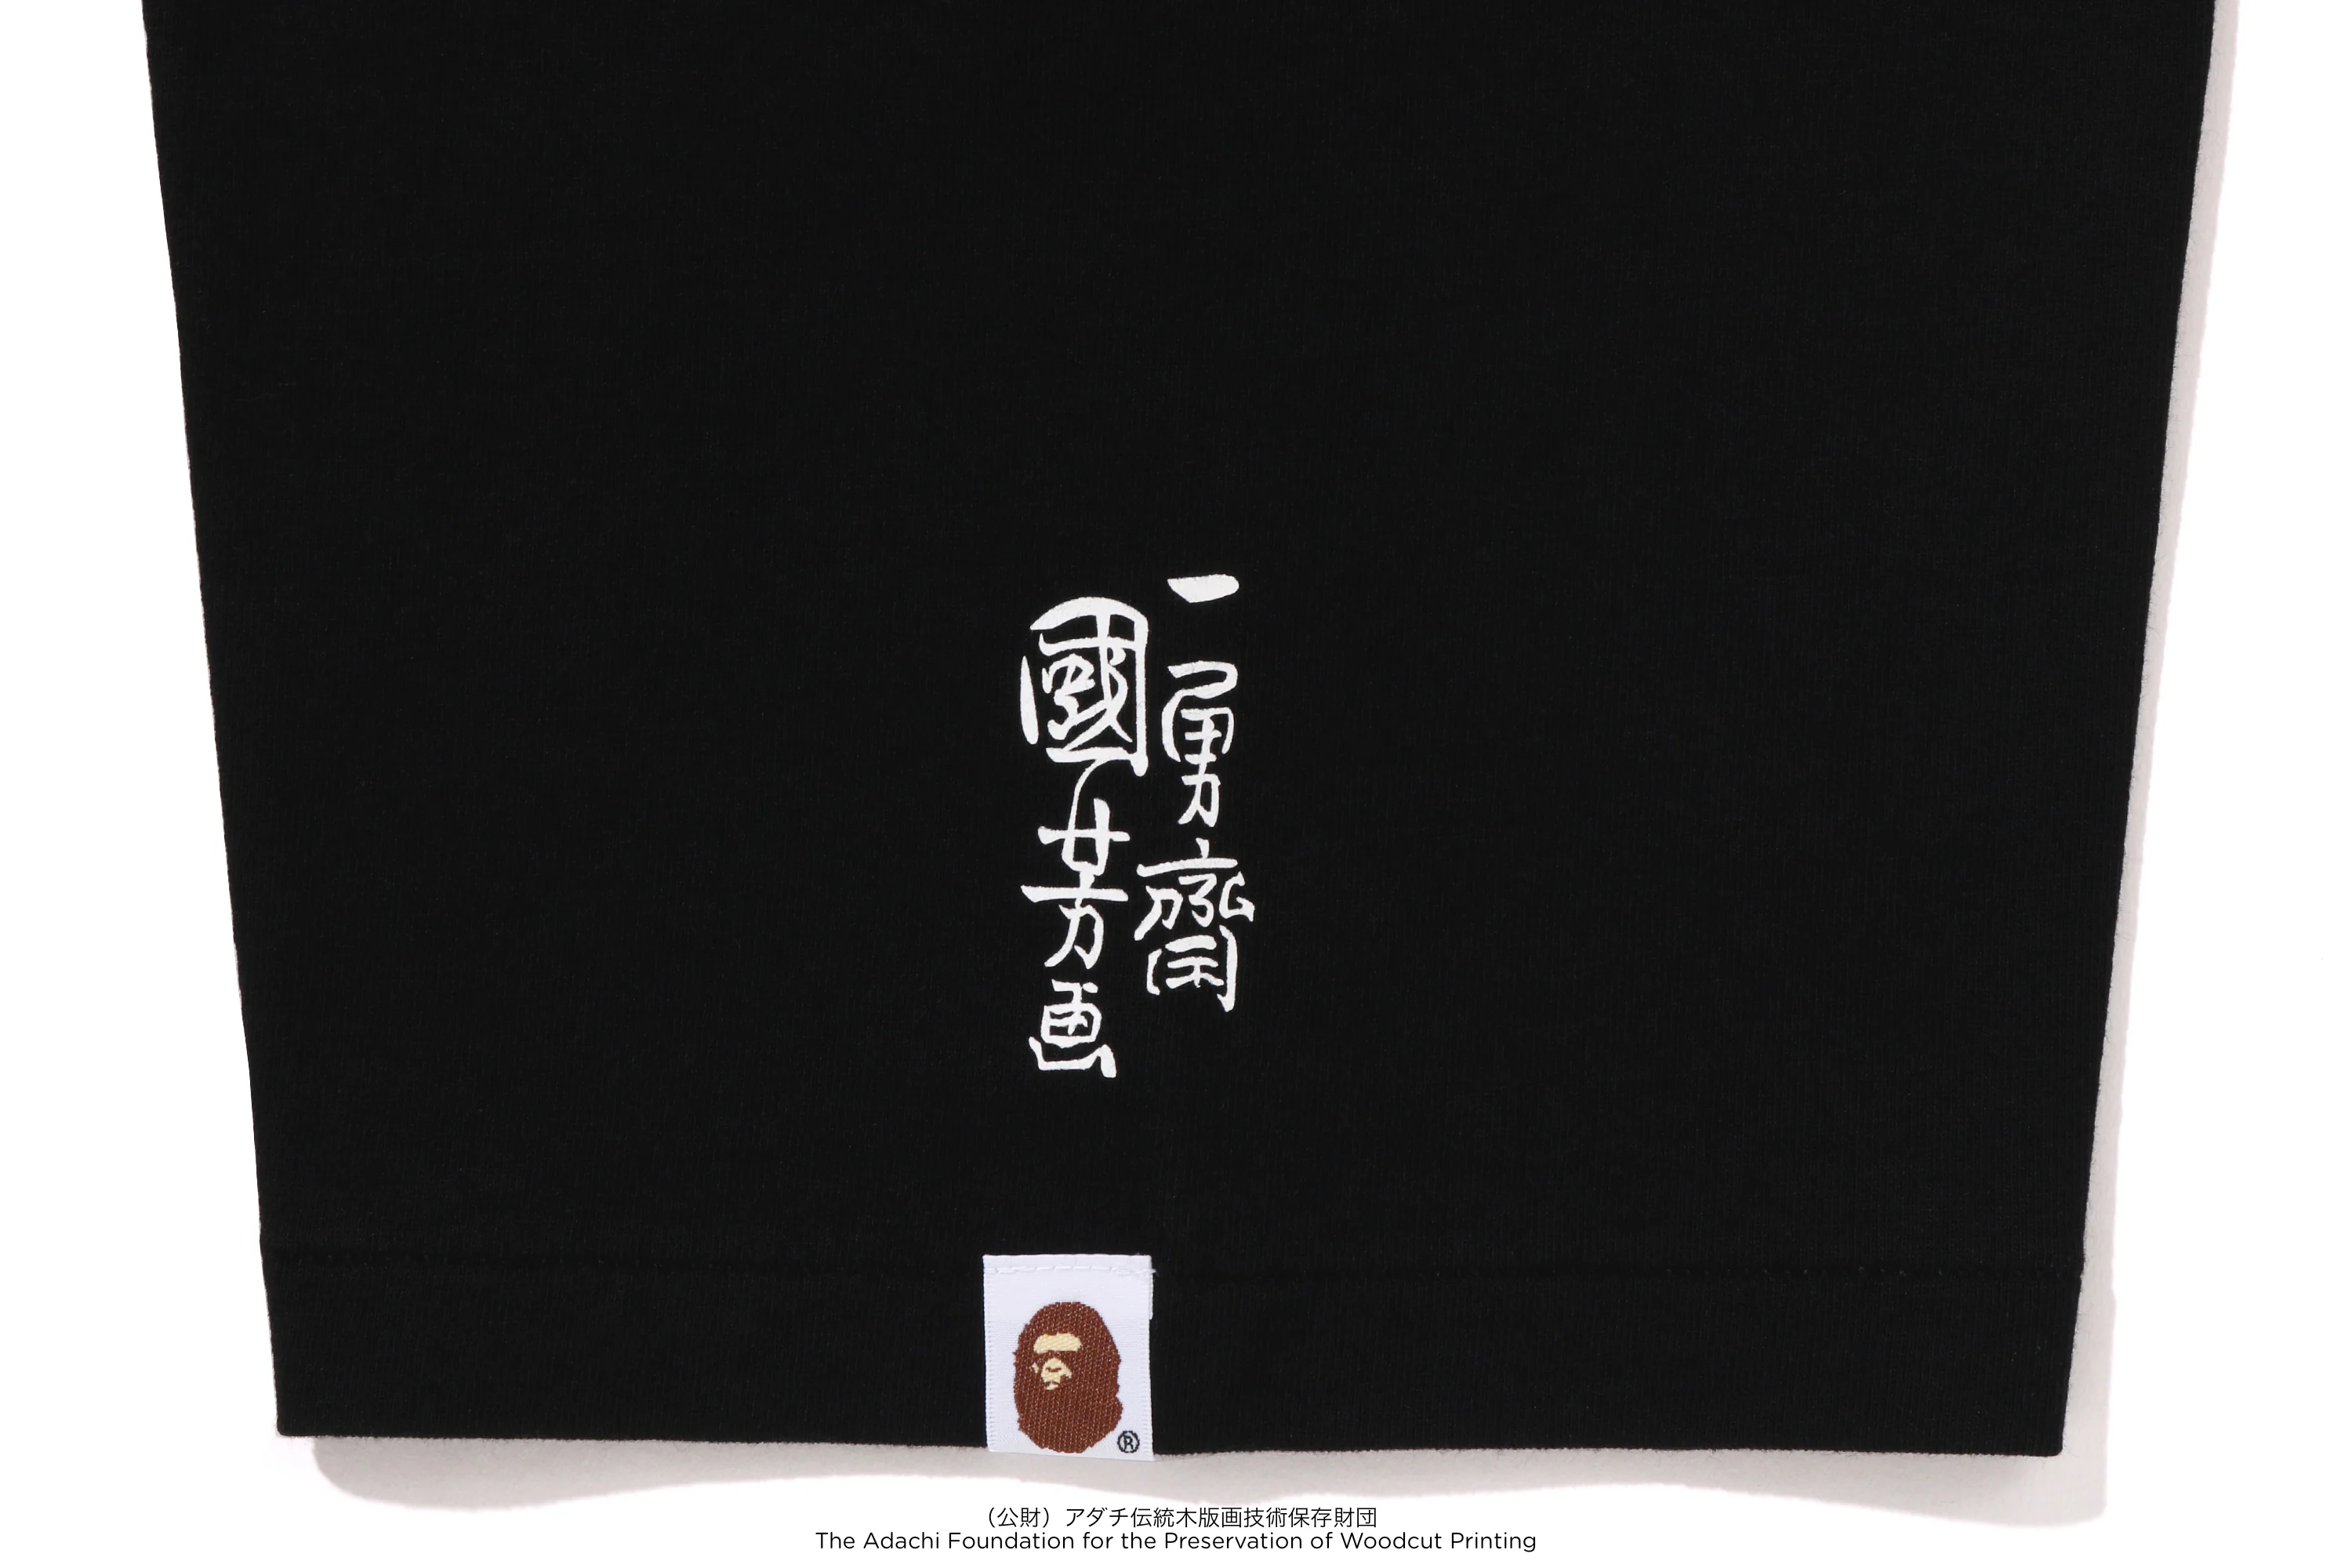 一勇齋
國芳画
®
（公財）アダチ伝統木版画技術保存財団
The Adachi Foundation for the Preservation of Woodcut Printing